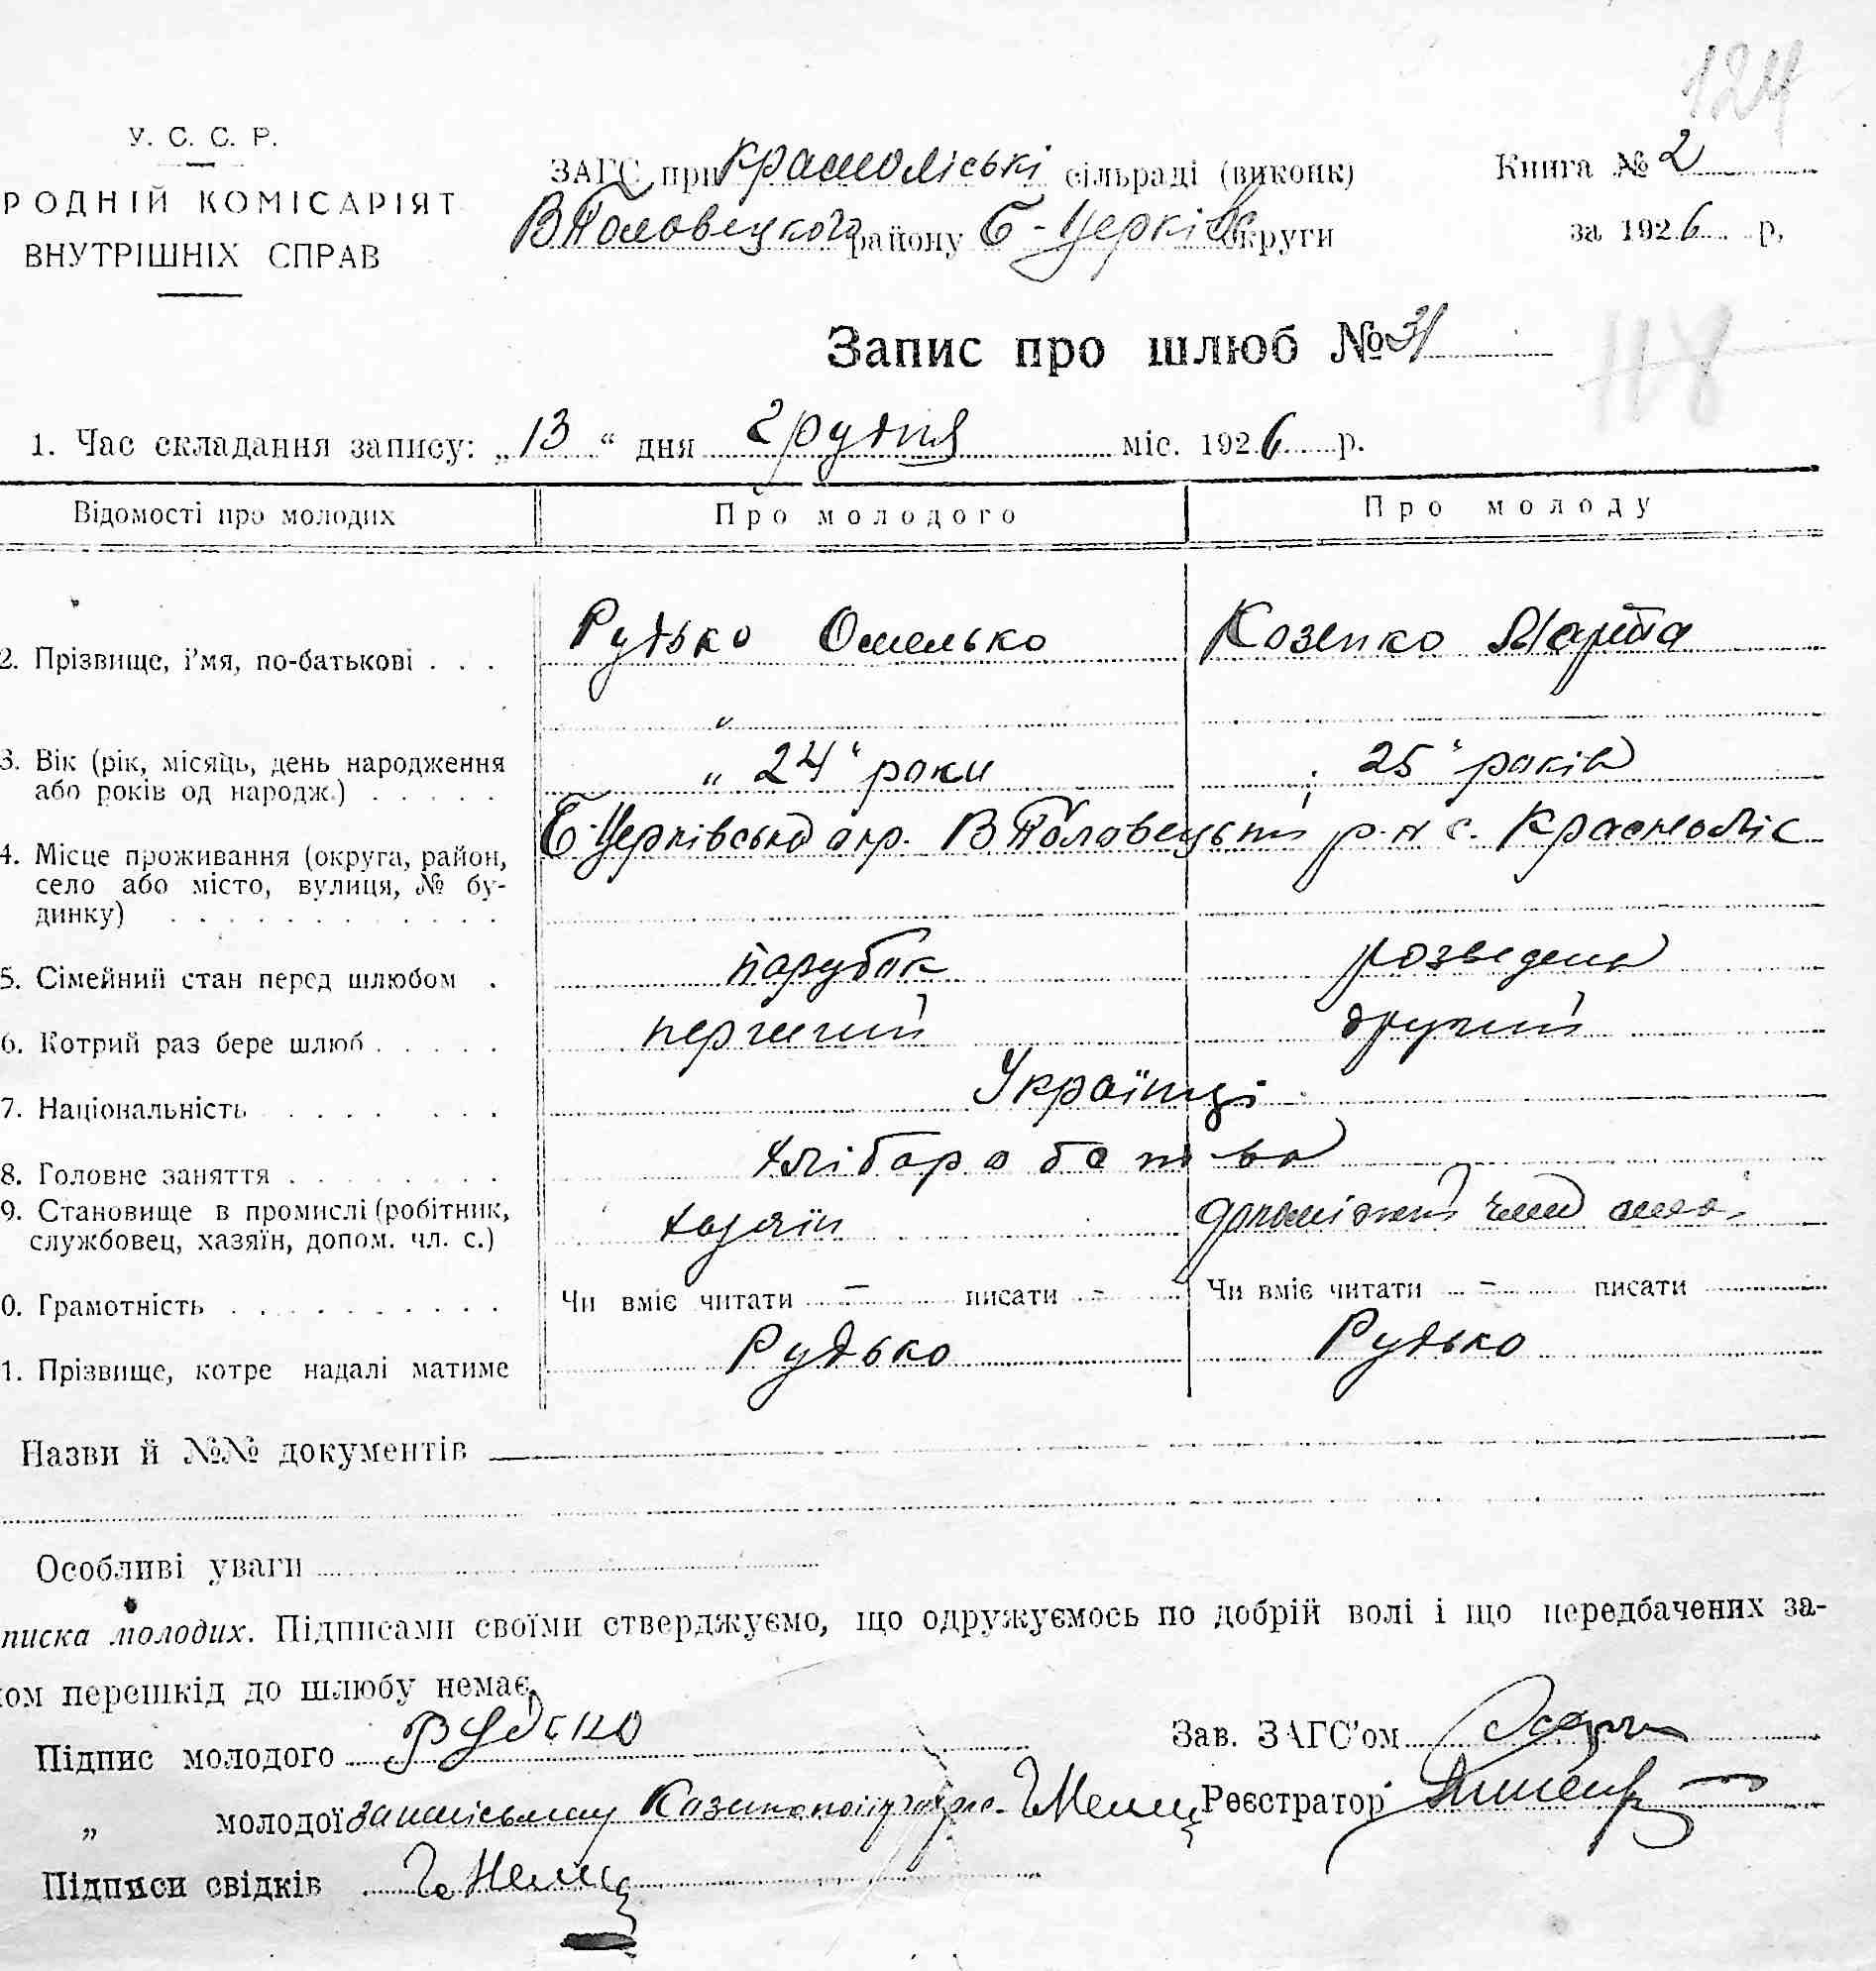 124
У. С. С. Р.
РОДНІЙ КОМІСАРІЯТ
ВНУТРІШНІХ СПРАВ
ЗАГС при Красноліські сільраді (виконк)
В Половецкого району Б-Церків округи
Книга № 2
за 1926 р,
Запис про шлюб № 31
118
1. Час складання запису: „13“ дня Грудня міс. 1926 р.
Відомості про молодих Про молодого Про молоду
2. Прізвище, і'мя, по-батькові . . . Рудько Омелько Козенко Марта
3. Вік (рік, місяць, день народження або років од народж.) . . . . . „ 24 “ роки 25 “ років
4. Місце проживання (округа, район, село або місто, вулиця, № будинку) Б-Церківська окр. В Половецький р-н с. Красноліс
5. Сімейний стан перед шлюбом . парубок розведена
6. Котрий раз бере шлюб . . . . . перший другий
7. Національність . . . . . . . Українці
8. Головне заняття . . . . . . . . Хліборобство
9. Становище в промислі (робітник, службовец, хазяїн, допом. чл. с.) хазяїн допоміжний член
0. Грамотність . . . . . . . . . . Чи вміє читати – писати - Чи вміє читати – писати
1. Прізвище, котре надалі матиме Рудько Рудько
Назви й №№ документів
Особливі уваги
писка молодих. Підписами своїми стверджуємо, що одружуємось по добрій волі і що передбачених за-
ом перешкід до шлюбу немає.
Підпис молодого Рудько
Зав. ЗАГС'ом
„ молодої Немец
Реєстратор
Підписи свідків Немец